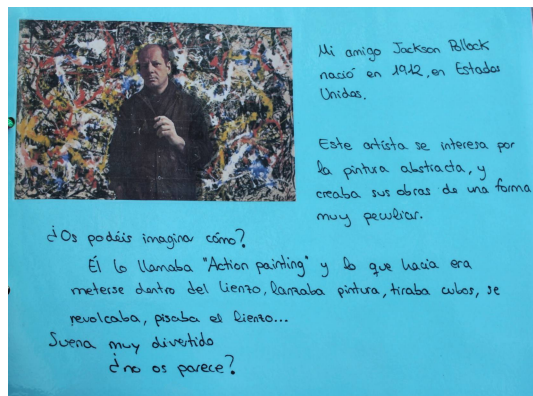 Mi amigo Jackson Pollock
nació en 1912, en Estados
Unidos.
Este artísta se interesa por
la pintura abstracta, y
creaba sus obras de una forma
muy peculiar.
¿Os podéis imaginar cómo?
Él lo llamaba "Action painting" y lo que hacia era
meterse dentro del lienzo, lanzaba pintura, tiraba cubos, se
revolcaba, pisaba el lienzo...
Suena muy divertido
¿no os parece?